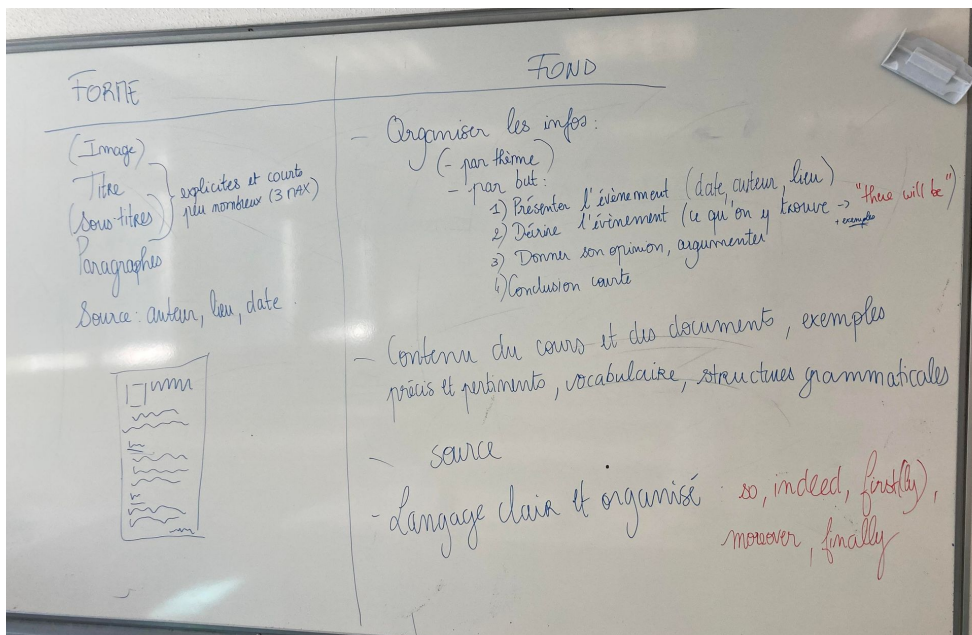 FORME
(Image)
Titre
(Sous-titres)
explicites et courts
peu nombreux (3 MAX)
Paragraphes
Source : auteur, lieu, date
FOND
- Organiser les infos :
(- par thème)
- par but :
1) Présenter l'évènement (date, auteur, lieu)
2) Décrire l'évènement (ce qu'on y trouve → "there will be")
+ exemples
3) Donner son opinion, argumenter
4) Conclusion courte
- Contenu du cours et des documents, exemples
précis et pertinents, vocabulaire, structures grammaticales
- source
- Langage clair et organisé
so, indeed, first(ly),
moreover, finally